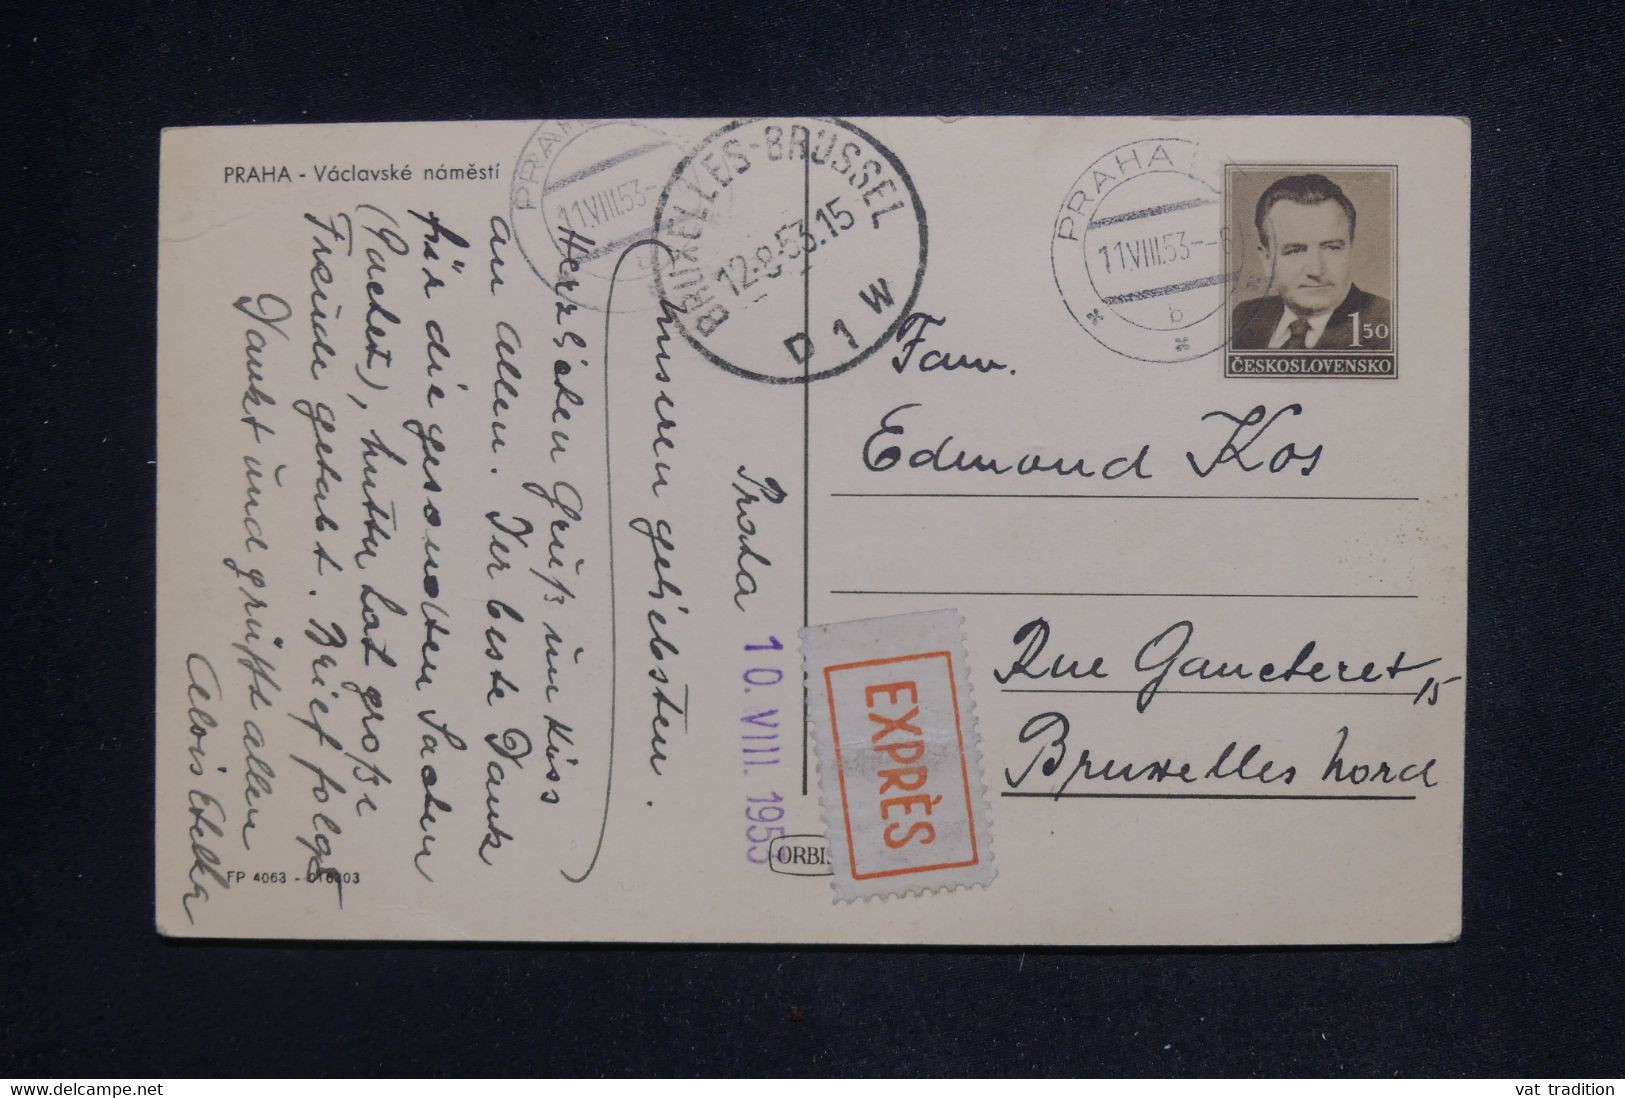 PRAHA - Václavské náměstí
PRAHA
11.VIII.53
BRUXELLES-BRUSSEL
12-8-53.15
D 1 W
PRAHA
11.VIII.53
b
1 50
ČESKOSLOVENSKO
Praha 10. VIII. 195
unseren geliebsten.
Herzlichen Gruß und Kuss
an allen. Der beste Dank
für die gesondten Sachen
(Packet), hat große
Freude gehabt. Brief folgt
Dankt und grüsst allen
Alois
FP 4063 -
Fam.
Edmond Kos
Rue Gaucheret 15
Bruxelles Nord
EXPRÈS
ORBIS
vat tradition